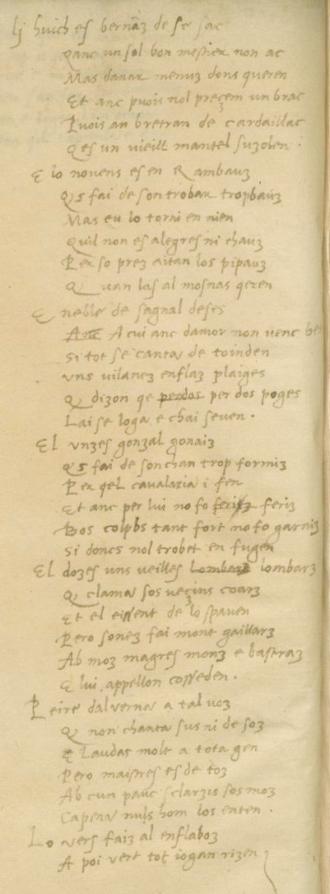 Lj huich es bernatz de se sac
Qanc un sol bon mestier non ac
Mas danar menutz dons queren
Et anc puois nol preçem un brac
Puois an bertran de cardaillac
Qes un vieill mantel suzolen.
E lo novens es en Rambautz
Qs fai de son trobar trop bautz
Mas eu lo torni en nien
Quil non es alegres ni chautz
Per so pretz aitan los pipautz
Quan las almosnas qeren
E neble de sagna
Anc A cui anc damor non venc be
Si tot se canta de coinden
Uns vilanez enflatz plaiges
Q dizon qe perdos per dos poges
Lai se loga e chai se ven.
El unzes gonzal gonaitz
Qs fai de son chan trop formitz
Per qel cavalaria i fen
Et anc per lui no fo feritz feritz
Bos colpbs tant fort no fo garnitz
Si doncs nol trobet en fugen
El dozes uns veilletz lombartz lombartz
Q clama sos veçins coartz
Et el eissent de lo spaven
Pero sonetz fai mout gaillartz
Ab motz magres e bastratz
E lui appellon cosseden.
Peire dalvernia a tal votz
Q non chanta sus ni de sotz
E Laudas molt a tota gen
Pero maistres es de totz
Ab cun pauc sclarzis sos motz
Capena nuls hom los enten.
Lo vers faitz al enflabotz
A poi vert tot iogan rizen